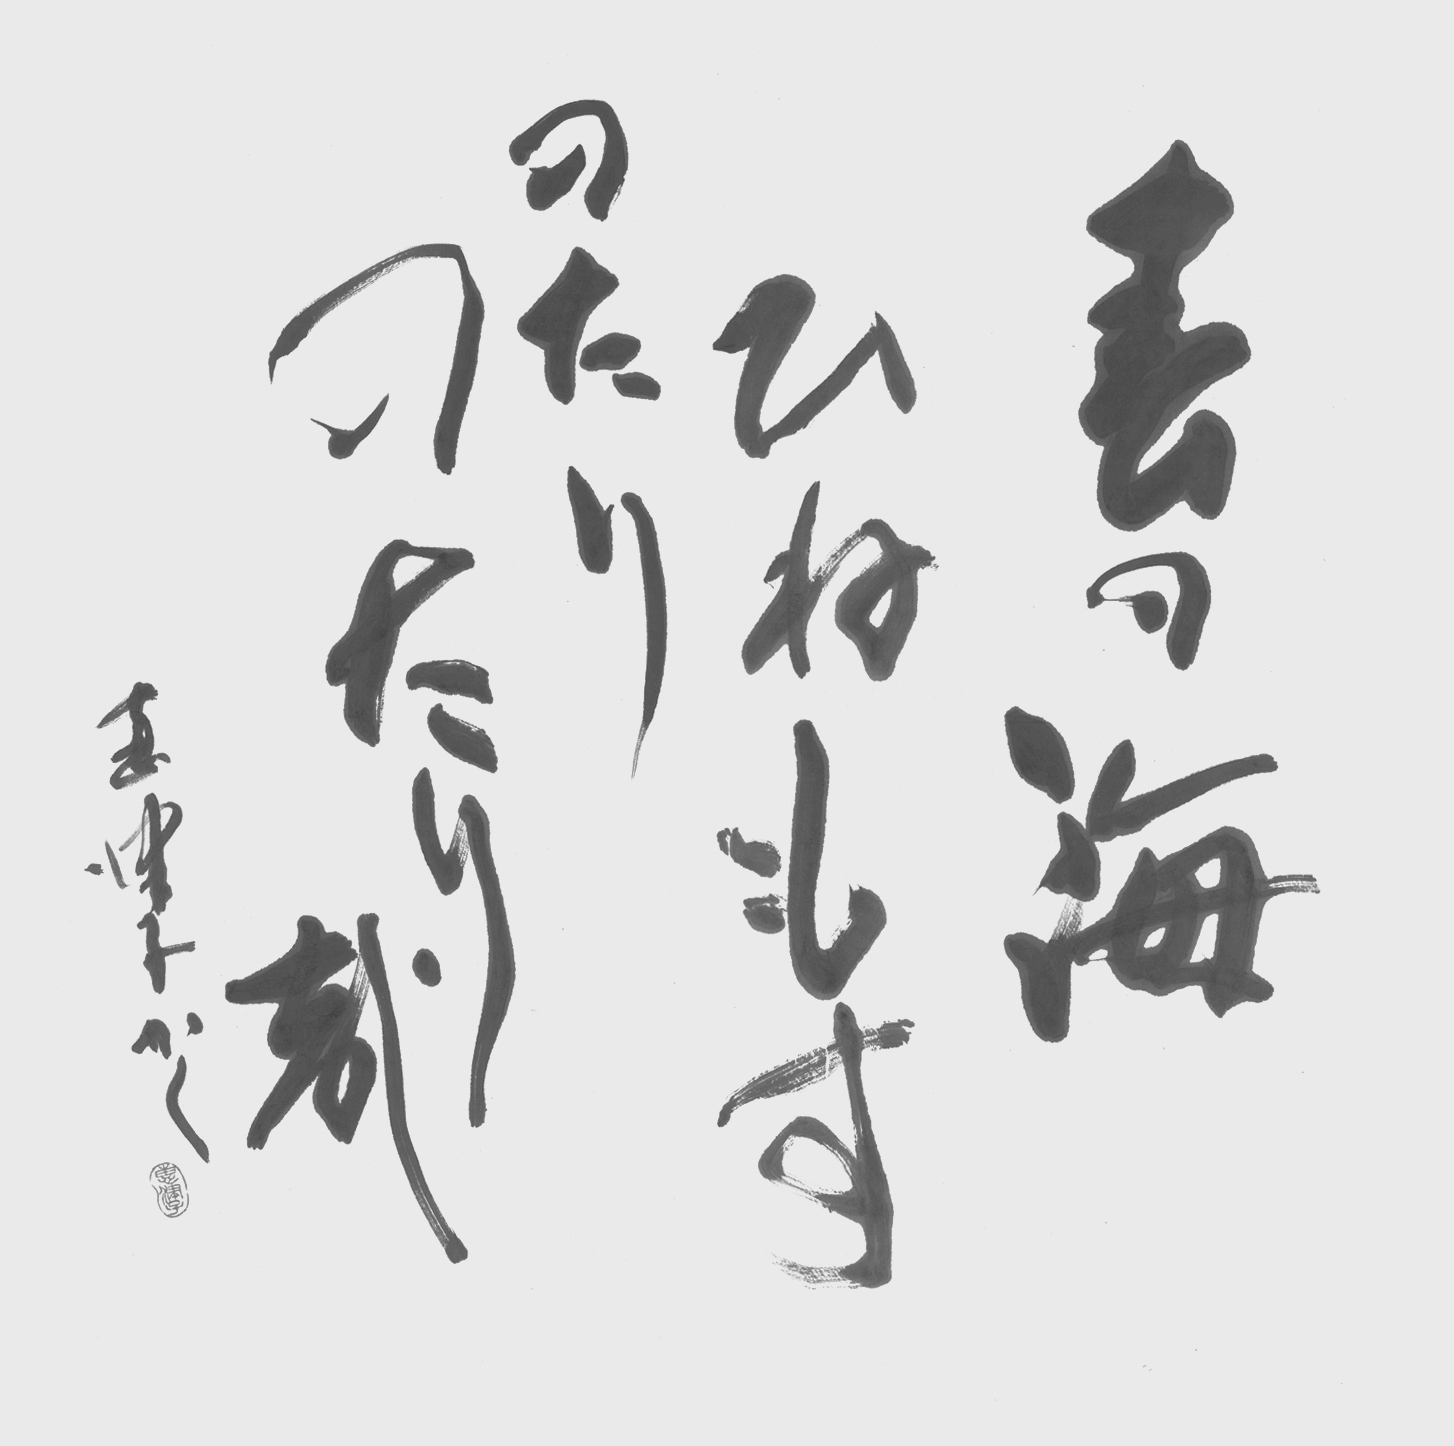 春の海
ひねもす
のたり
のたり哉